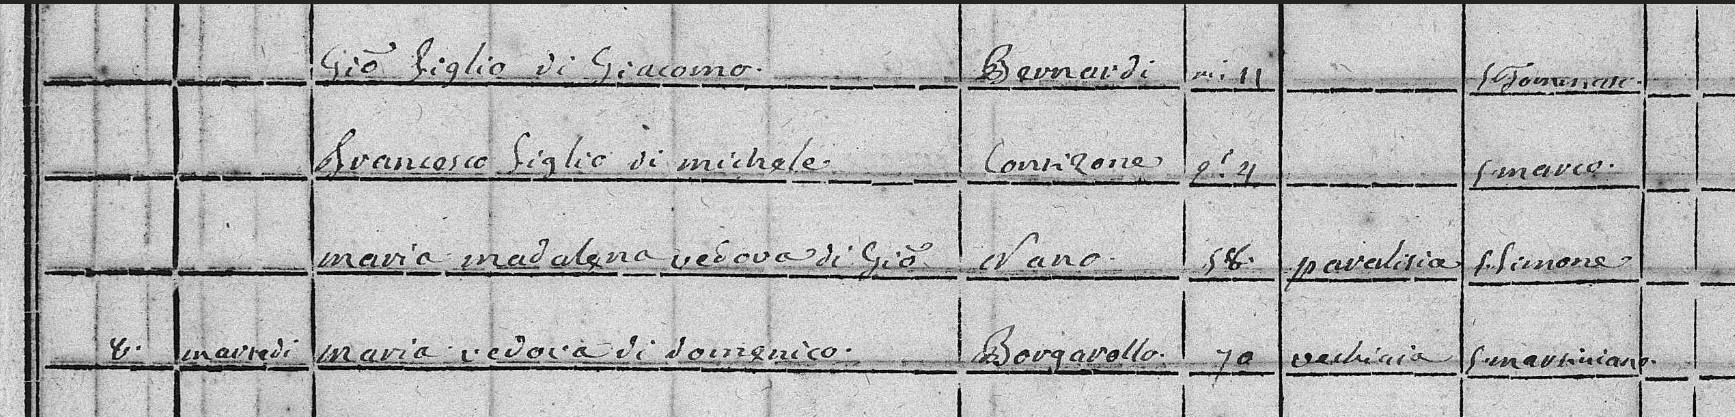 Giõ figlio di Giacomo. Bernardi mi: 11 S Tommaso.
Francesco figlio di michele. 4 S marco.
maria madalena vedova di Giõ Nano. 58. paralisia S Simone
8. martedi maria vedova di domenico. Borgarello. 70 vechiaia S marsiniano.